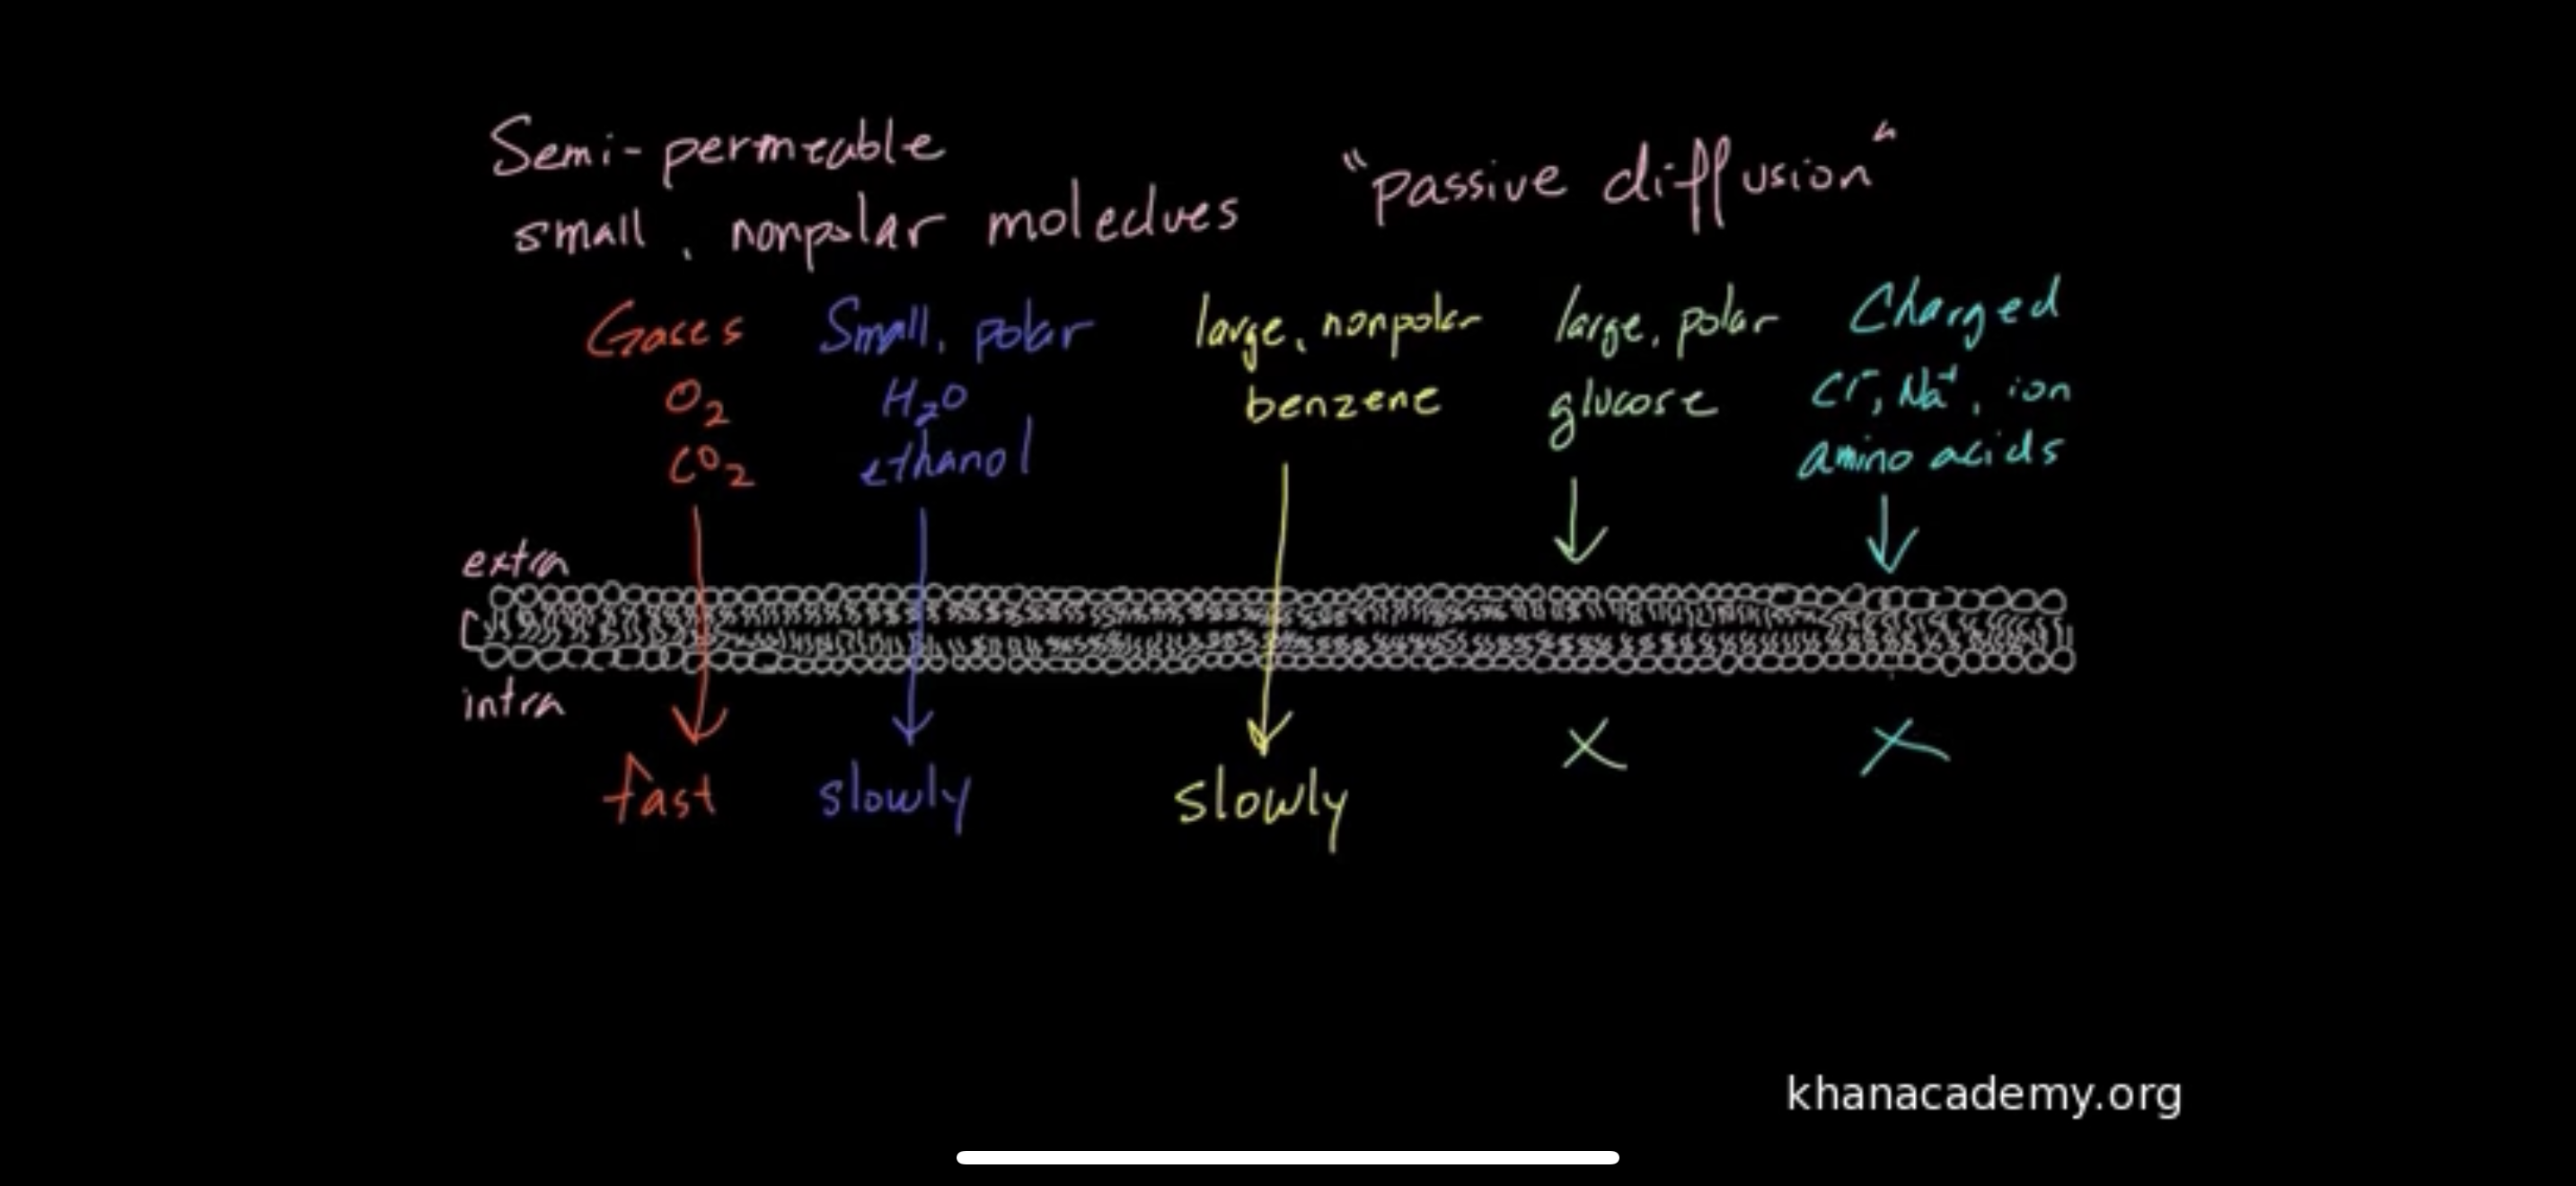 Semi-permeable
small, nonpolar molecules
"passive diffusion"
Gases
O₂
CO₂
Small, polar
H₂O
ethanol
large, nonpolar
benzene
large, polar
glucose
Charged
Cl⁻, Na⁺, ion
amino acids
extra
intra
fast
slowly
slowly
X
X
khanacademy.org